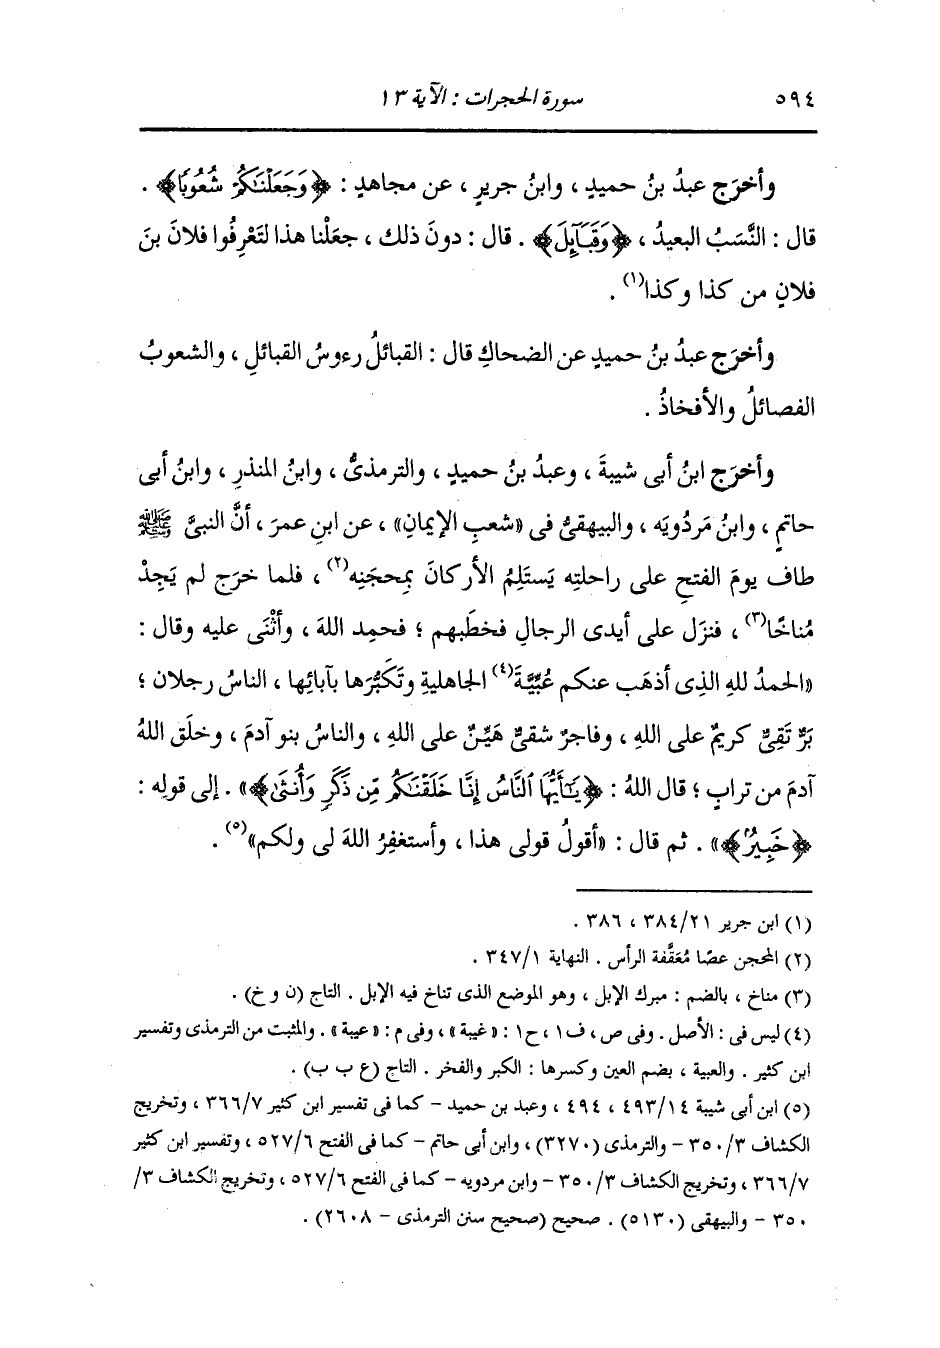 ٥٩٤ سورة الحجرات : الآية ١٣
وأخرَج عبدُ بنُ حميدٍ ، وابنُ جريرٍ ، عن مجاهدٍ : ﴿وَجَعَلْنَٰكُمْ شُعُوبًا﴾ .
قال : النَّسَبُ البعيدُ ، ﴿وَقَبَآئِلَ﴾ . قال : دونَ ذلك ، جعَلْنا هذا لتَعْرِفُوا فلانَ بنَ
فلانٍ من كذا وكذا(١) .
وأخرَج عبدُ بنُ حميدٍ عن الضحاكِ قال : القبائلُ رءوسُ القبائلِ ، والشعوبُ
الفصائلُ والأفخاذُ .
وأخرَج ابنُ أبى شيبةَ ، وعبدُ بنُ حميدٍ ، والترمذىُّ ، وابنُ المنذرِ ، وابنُ أبى
حاتمٍ ، وابنُ مَردُويَه ، والبيهقىُّ فى «شعبِ الإيمانِ» ، عن ابنِ عمرَ ، أنَّ النبىَّ ﷺ
طاف يومَ الفتحِ على راحلتِه يَستَلِمُ الأركانَ بمِحجَنِه(٢) ، فلما خرَج لم يَجِدْ
مُناخًا(٣) ، فنزَل على أيدى الرجالِ فخطَبهم ؛ فحمِد اللهَ ، وأثْنَى عليه وقال :
«الحمدُ للهِ الذِى أذهَب عنكم عُبِّيَّةَ(٤) الجاهليةِ وتَكَبُّرَها بآبائِها ، الناسُ رجلان ؛
بَرٌّ تَقِىٌّ كريمٌ على اللهِ ، وفاجرٌ شقىٌّ هَيِّنٌ على اللهِ ، والناسُ بنو آدمَ ، وخلَق اللهُ
آدمَ من ترابٍ ؛ قال اللهُ : ﴿يَٰٓأَيُّهَا ٱلنَّاسُ إِنَّا خَلَقْنَٰكُم مِّن ذَكَرٍ وَأُنثَىٰ﴾» . إلى قولِه :
﴿خَبِيرٌ﴾» . ثم قال : «أقولُ قولى هذا ، وأستغفِرُ اللهَ لى ولكم»(٥) .
(١) ابن جرير ٢١/٣٨٤ ، ٣٨٦ .
(٢) المحجن عصًا مُعَقَّفة الرأس . النهاية ١/٣٤٧ .
(٣) مناخ ، بالضم : مبرك الإبل ، وهو الموضع الذى تناخ فيه الإبل . التاج (ن و خ) .
(٤) ليس فى : الأصل . وفى ص ، ف١ ، ح١ : «غيبة» ، وفى م : «عيبة» . والمثبت من الترمذى وتفسير
ابن كثير . والعبية ، بضم العين وكسرها : الكبر والفخر . التاج (ع ب ب) .
(٥) ابن أبى شيبة ١٤/٤٩٣ ، ٤٩٤ ، وعبد بن حميد - كما فى تفسير ابن كثير ٧/٣٦٦ ، وتخريج
الكشاف ٣/٣٥٠ - والترمذى (٣٢٧٠) ، وابن أبى حاتم - كما فى الفتح ٦/٥٢٧ ، وتفسير ابن كثير
٧/٣٦٦ ، وتخريج الكشاف ٣/٣٥٠ - وابن مردويه - كما فى الفتح ٦/٥٢٧ ، وتخريج الكشاف ٣/
٣٥٠ - والبيهقى (٥١٣٠) . صحيح (صحيح سنن الترمذى - ٢٦٠٨) .